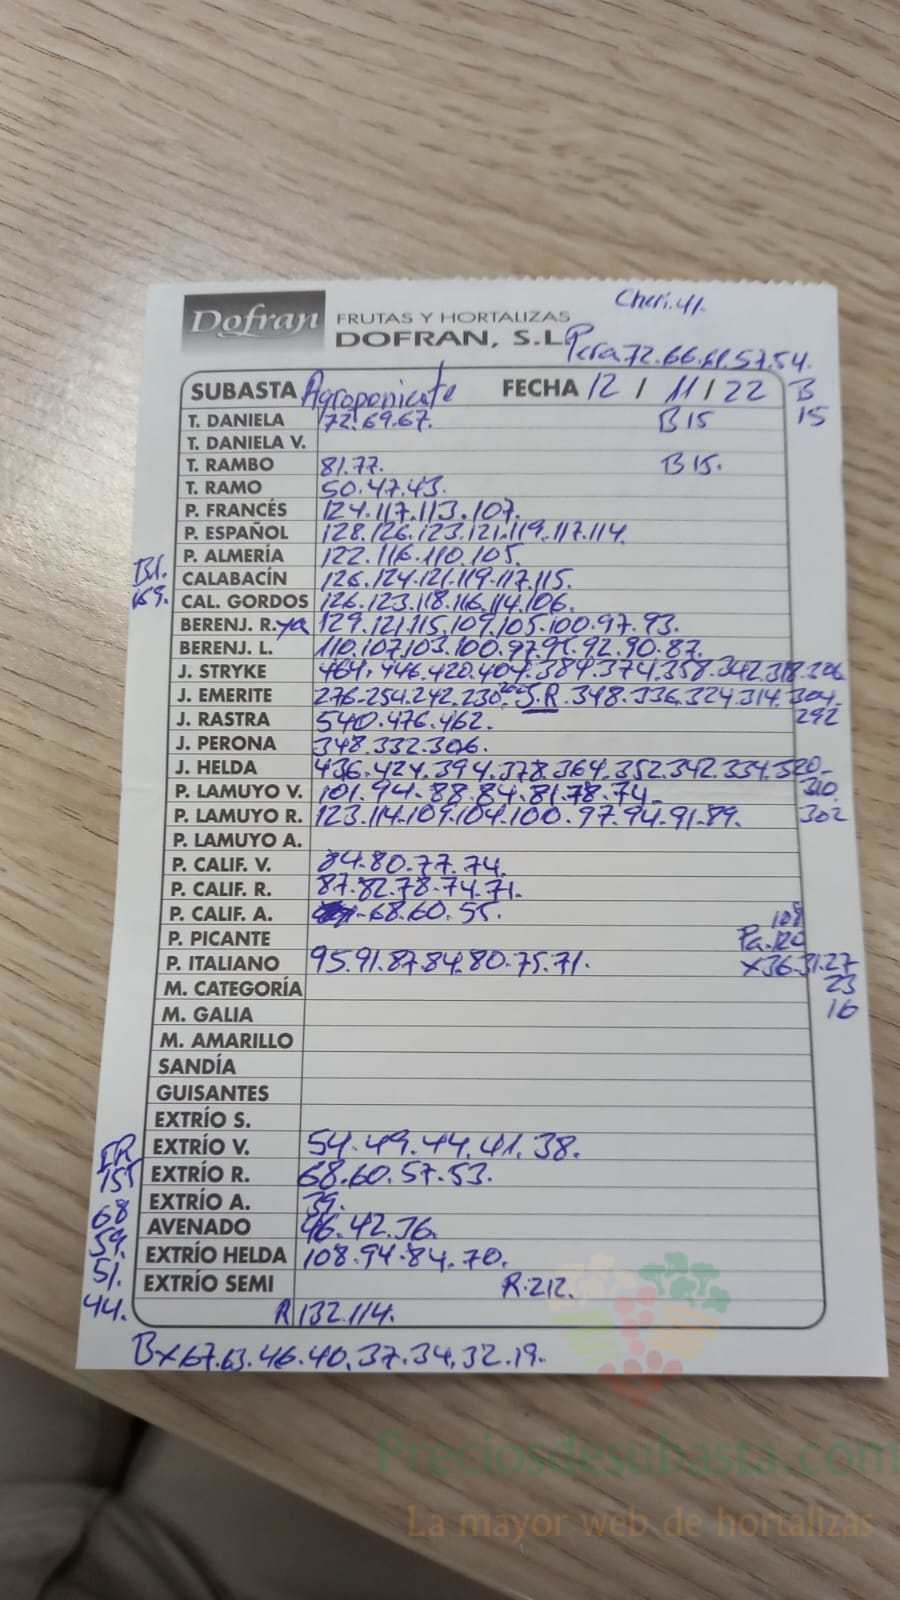 Cheri.41.
Dofran FRUTAS Y HORTALIZAS
DOFRAN, S.L.
Pera 72.66.61.57.54.
SUBASTA Agroponiente FECHA 12 / 11 / 22 B
15
T. DANIELA 72.69.67. B15
T. DANIELA V.
T. RAMBO 81.77. B15.
T. RAMO 50.47.43.
P. FRANCÉS 124.117.113.107.
P. ESPAÑOL 128.126.123.121.119.117.114.
P. ALMERÍA 122.116.110.105.
Bl. CALABACÍN 126.124.121.119.117.115.
69. CAL. GORDOS 126.123.118.116.114.106.
BERENJ. R. ya 129.121.115.109.105.100.97.93.
BERENJ. L. 110.107.103.100.97.95.92.90.87.
J. STRYKE 464.446.420.404.384.374.358.342.318.306
J. EMERITE 276-254.242.230. S.R.348.336.324.314.304.
292
J. RASTRA 540.476.462.
J. PERONA 348.332.306.
J. HELDA 436.424.394.378.364.352.342.334.320-
310.
P. LAMUYO V. 101.94-88.84.81.78.74-
P. LAMUYO R. 123.114.109.104.100.97.94.91.89. 302
P. LAMUYO A.
P. CALIF. V. 84.80.77.74.
P. CALIF. R. 87.82.78.74.71.
P. CALIF. A. 68.60.55. 108
P. PICANTE Pa.120
P. ITALIANO 95.91.87.84.80.75.71. x36.31.27
M. CATEGORÍA 23
M. GALIA 16
M. AMARILLO
SANDÍA
GUISANTES
EXTRÍO S.
ER EXTRÍO V. 54.49.44.41.38.
155 EXTRÍO R. 68.60.57.53.
68 EXTRÍO A. 39.
59. AVENADO 46.42.36.
51. EXTRÍO HELDA 108.94.84.70.
44. EXTRÍO SEMI R.212.
R132.114.
Bx67.63.46.40.37.34.32.19.
Preciosdesubasta.com
La mayor web de hortalizas